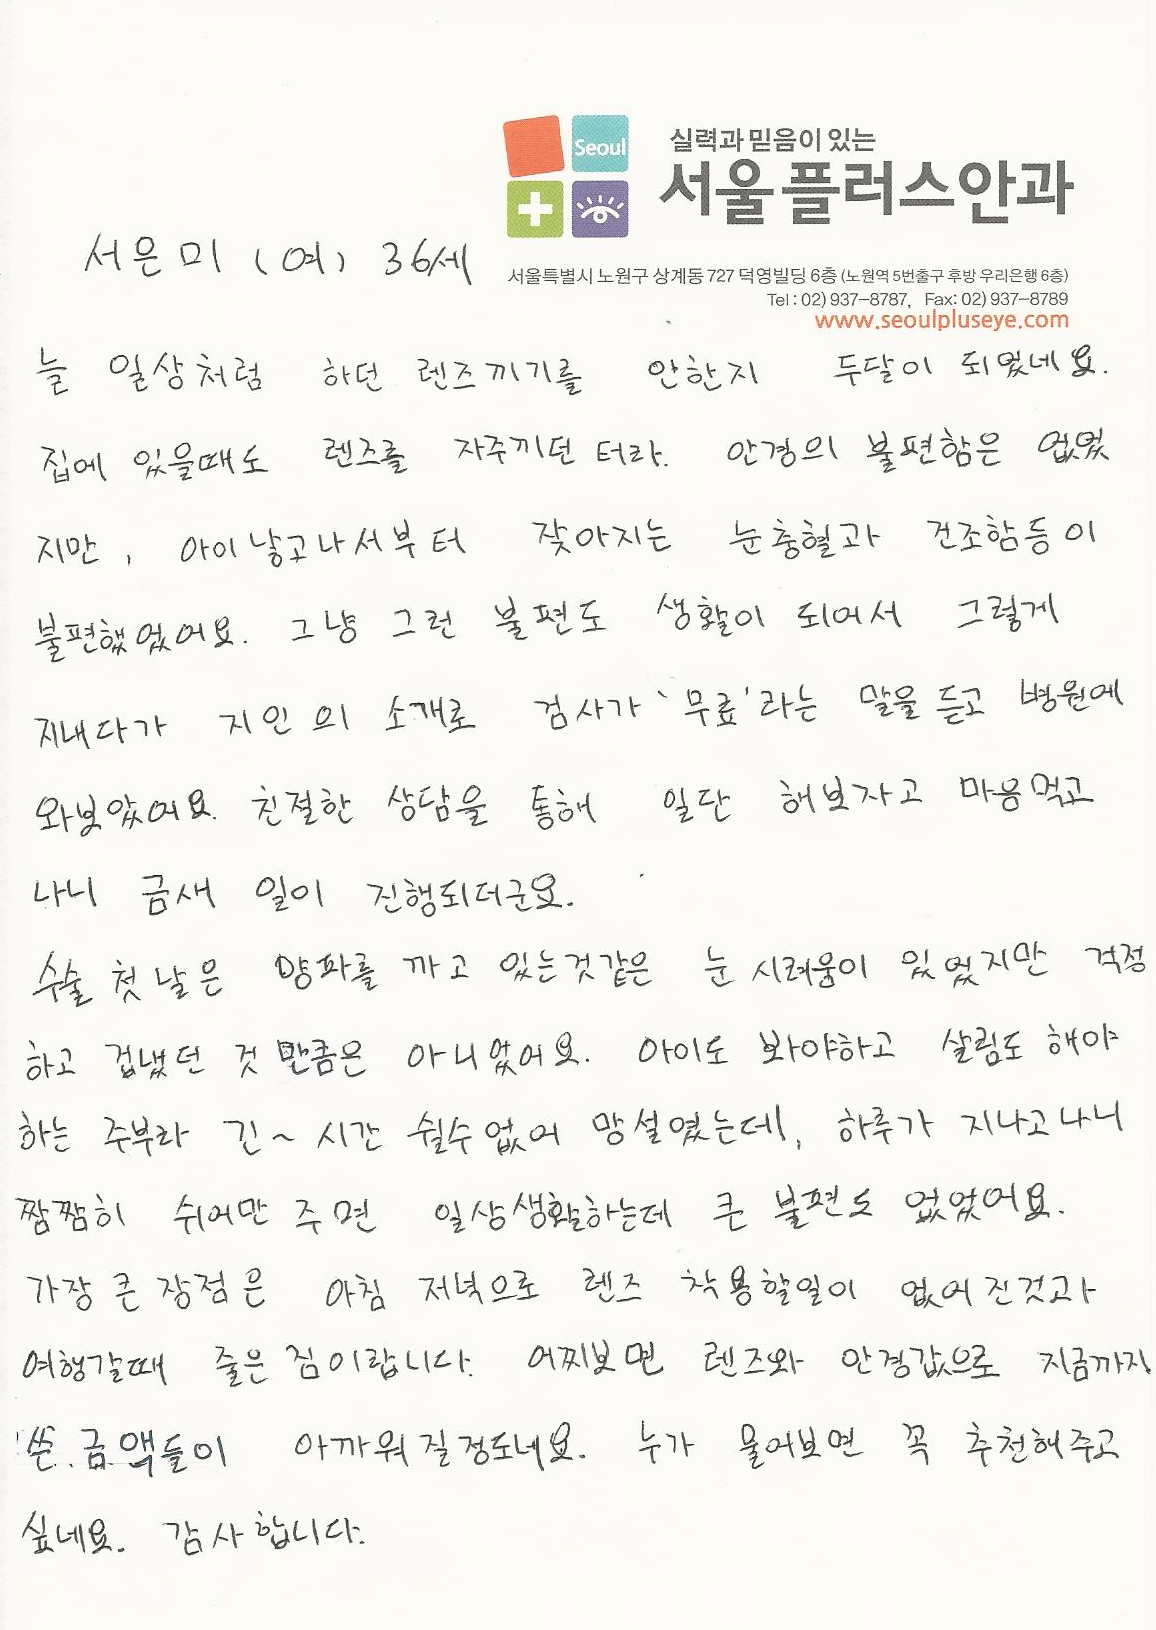 Seoul
실력과 믿음이 있는
서울플러스안과
서은미 (여) 36세
서울특별시 노원구 상계동 727 덕영빌딩 6층 (노원역 5번출구 후방 우리은행 6층)
Tel : 02) 937-8787, Fax: 02) 937-8789
www.seoulpluseye.com
늘 일상처럼 하던 렌즈끼기를 안한지 두달이 되었네요.
집에 있을때도 렌즈를 자주끼던 터라. 안경의 불편함은 없었
지만, 아이낳고나서부터 잦아지는 눈충혈과 건조함등이
불편했었어요. 그냥 그런 불편도 생활이 되어서 그렇게
지내다가 지인의 소개로 검사가 '무료'라는 말을 듣고 병원에
와보았어요. 친절한 상담을 통해 일단 해보자고 마음먹고
나니 금새 일이 진행되더군요.
수술 첫날은 양파를 까고 있는것같은 눈시려움이 있었지만 걱정
하고 겁냈던 것 만큼은 아니었어요. 아이도 봐야하고 살림도 해야
하는 주부라 긴~ 시간 쉴수없어 망설였는데, 하루가 지나고나니
짬짬히 쉬어만 주면 일상생활하는데 큰 불편도 없었어요.
가장 큰 장점은 아침 저녁으로 렌즈 착용할일이 없어진것과
여행갈때 줄은 짐이랍니다. 어찌보면 렌즈와 안경값으로 지금까지
쓴 금액들이 아까워질정도네요. 누가 물어보면 꼭 추천해주고
싶네요. 감사합니다.